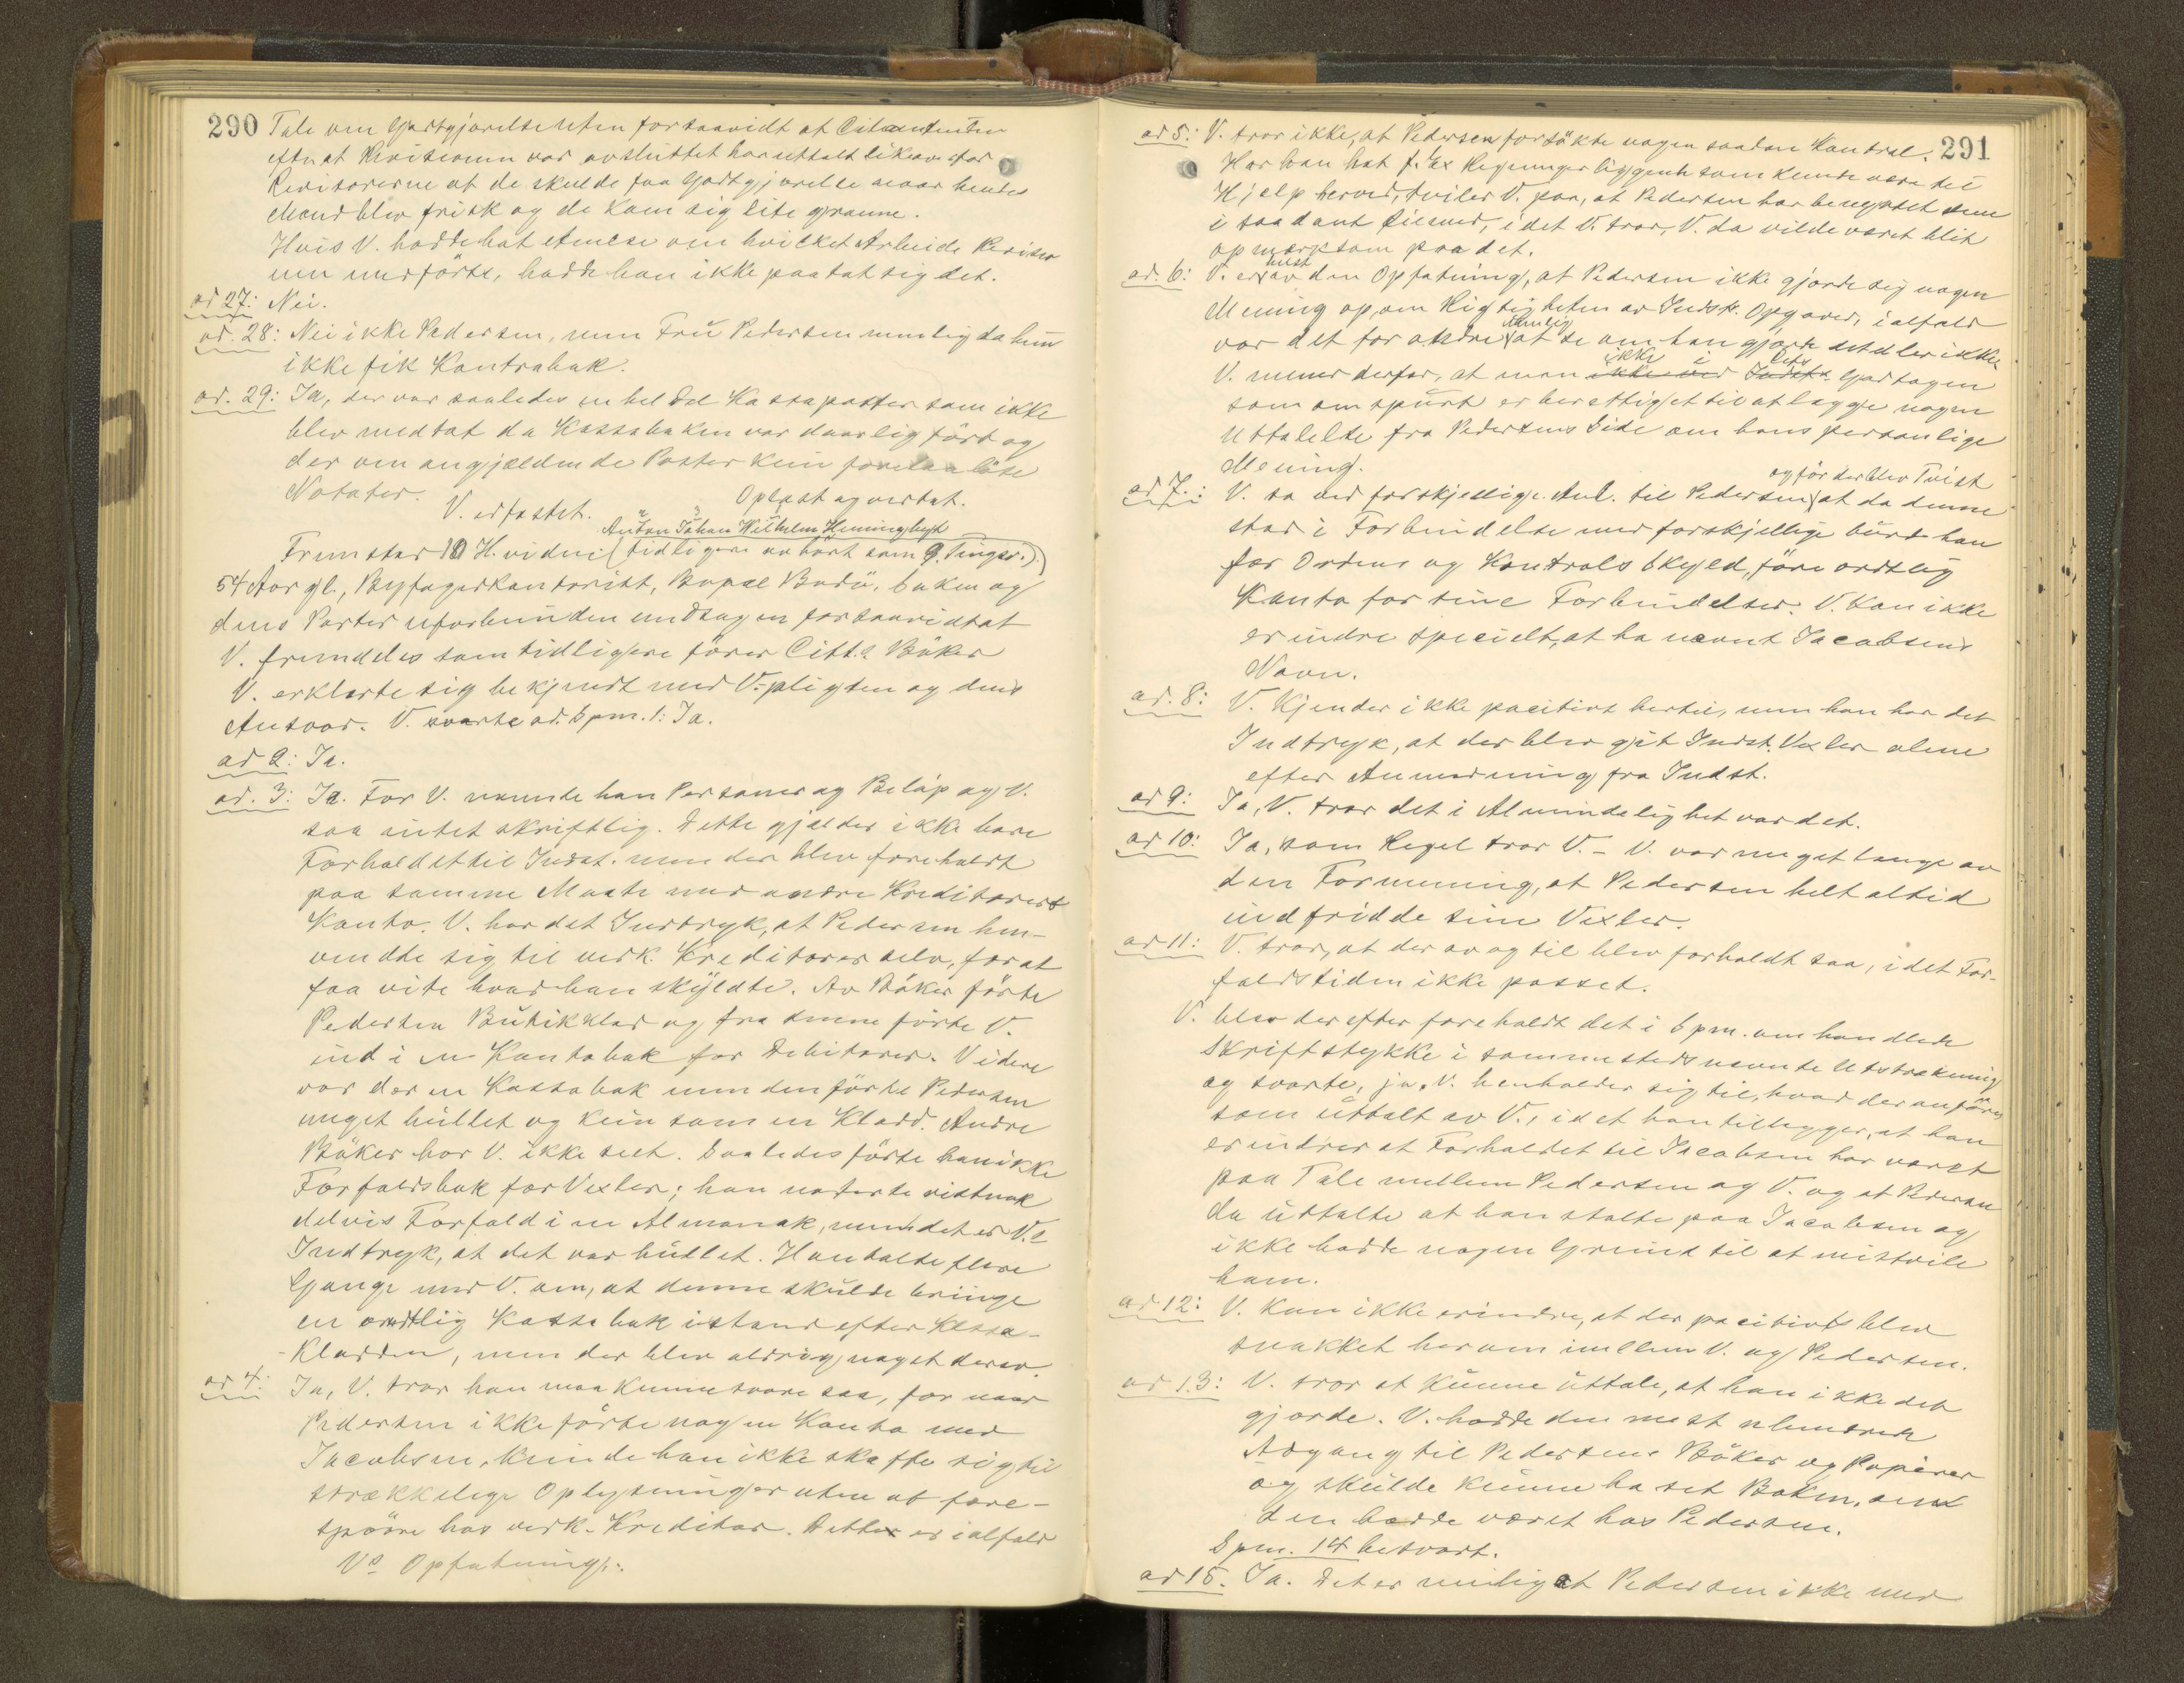 290 Tale om Godtgjørelse uten forsaavidt at Citantinten
efter at Revisionen var avsluttet har uttalt likeoverfor
Revisorerne at de skulde faa Godtgjørelse naar hendes
Mand blev frisk og de kom sig lite granne.
Hvis V. hadde hat Anelse om hvilket Arbeide Revisio
nen medførte, hadde han ikke paatat sig det.
ad 27: Nei.
ad. 28: Nei ikke Pedersen, men Fru Pedersen nemlig da hun
ikke fik Kontrabok.
ad. 29: Ja, der var saaledes en hel Del Kassaposter som ikke
blev medtat da Kassaboken var daarlig ført og
der om angjældende Poster kun forelaa løse
Notater.
Oplæst og vedtat.
V. erfastet.
Anton Johan Wilhelm Hemminghytt
Fremstod 10 H. vidne: (tidligere avhørt som 9. Tingsv.)
54 Aar gl., Byfogedkontorist, Bopæl Bodø, Saken og
dens Parter uforbunden undtagen forsaavidt at
V. fremdeles som tidligere fører Citt.s Bøker
V. erklærte sig bekjendt med V-pligten og dens
Ansvar. V. svarte ad. Spm. 1: Ja.
ad 2: Ja.
ad. 3: Ja. For V. nævnte han Personer og Beløp og V.
saa intet skriftlig. Dette gjælder ikke bare
Forholdet til Indst. men der blev forholdt
paa samme Maate med andre Kreditorers
Konto. V. har det Indtryk, at Pedersen hen-
vendte sig til vedk. Kreditorer selv, for at
faa vite hvad han skyldte. Av Bøker førte
Pedersen Butikklad og fra denne førte V.
ind i en Kontobok for Debitorer. Videre
var der en Kassabok men den førte Pedersen
meget hullet og kun som en Kladd. Andre
Bøker har V. ikke seet. Saaledes førte han ikke
Forfaldsbok for Vexler; han noterte vistnok
delvis Forfald i en Almanak, men det er V.s
Indtryk, at det var hullet. Han talte flere
Gange med V. om, at denne skulde bringe
en ordtlig Kassabok istand efter Kassa-
-Kladden, men der blev aldrig noget derav.
ad 4: Ja, V. tror han maa kunne svare saa, for naar
Pedersen ikke førte nogen Konto med
Jacobsen, kunde han ikke skaffe sig til
strækkelige Oplysninger uten at fore-
spørre hos vedk. Kreditor. Dette er ialfald
V.s Opfatning.
291
ad 5: V. tror ikke, at Pedersen forsøkte nogen saadan Kontrol.
Har han hat f. Ex Regninger liggende som kunde være til
Hjelp herved, tviler V. paa, at Pedersen har benyttet dem
i saadant Øiemed, idet V. tror, V. da vilde været blit
opmerksom paa det.
ad. 6: V. er av den Opfatning, at Pedersen ikke gjorde sig nogen
Mening op, om Rigtigheten av Indst. Opgaver, ialfald
nemlig
var det for andre at se om han gjorde det eller ikke
ikke i
V. mener derfor, at man ikke ved Indsta. Godtagen
som omspurt er berettiget til at lægge nogen
Uttalelse fra Pedersens Side om hans personlige
Mening.
og før der blev Tvist
ad 7.: V. sa ved forskjellige Anl. til Pedersen at da denne
stod i Forbindelse med forskjellige burde han
for Ordens og Kontrols Skyld, føre ordtlig
Konto for sine Forbindelser. V. kan ikke
erindre specielt, at ha nævnt Jacobsens
Navn.
ad. 8: V. Kjender ikke positivt hertil, men han har det
Indtryk, at der blev git Indst. Vexler alene
efter Anmodning fra Indst.
ad 9: Ja, V. tror det i Almindelighet var det.
ad 10: Ja, som Regel tror V. - V. var meget længe av
den Formening, at Pedersen helt altid
indfridde sine Vexler.
ad 11: V. tror, at der av og til blev forholdt saa, idet For-
faldstiden ikke passet.
V. blev derefter foreholdt det i Spm. omhandlede
Skriftstykke i sammesteds nævnte Utstrækning
og svarte, ja. V. henholder sig til, hvad der anføres
som uttalt av V., idet han tillægger, at han
erindrer at Forholdet til Jacobsen har været
paa Tale mellem Pedersen og V. og at Pedersen
da uttalte at han stolte paa Jacobsen og
ikke hadde nogen Grund til at mistvile
ham.
ad 12: V. Kan ikke erindre, at der positivt blev
snakket herom imellem V. og Pedersen.
ad 13: V. tror at kunne uttale, at han ikke det
gjorde. V. hadde den mest uhindrede
Adgang til Pedersens Bøker og Papirer
og skulde kunne ha set Boken, om
den hadde været hos Pedersen.
Spm. 14 besvart.
ad 15. Ja. Det er mulig at Pedersen ikke med